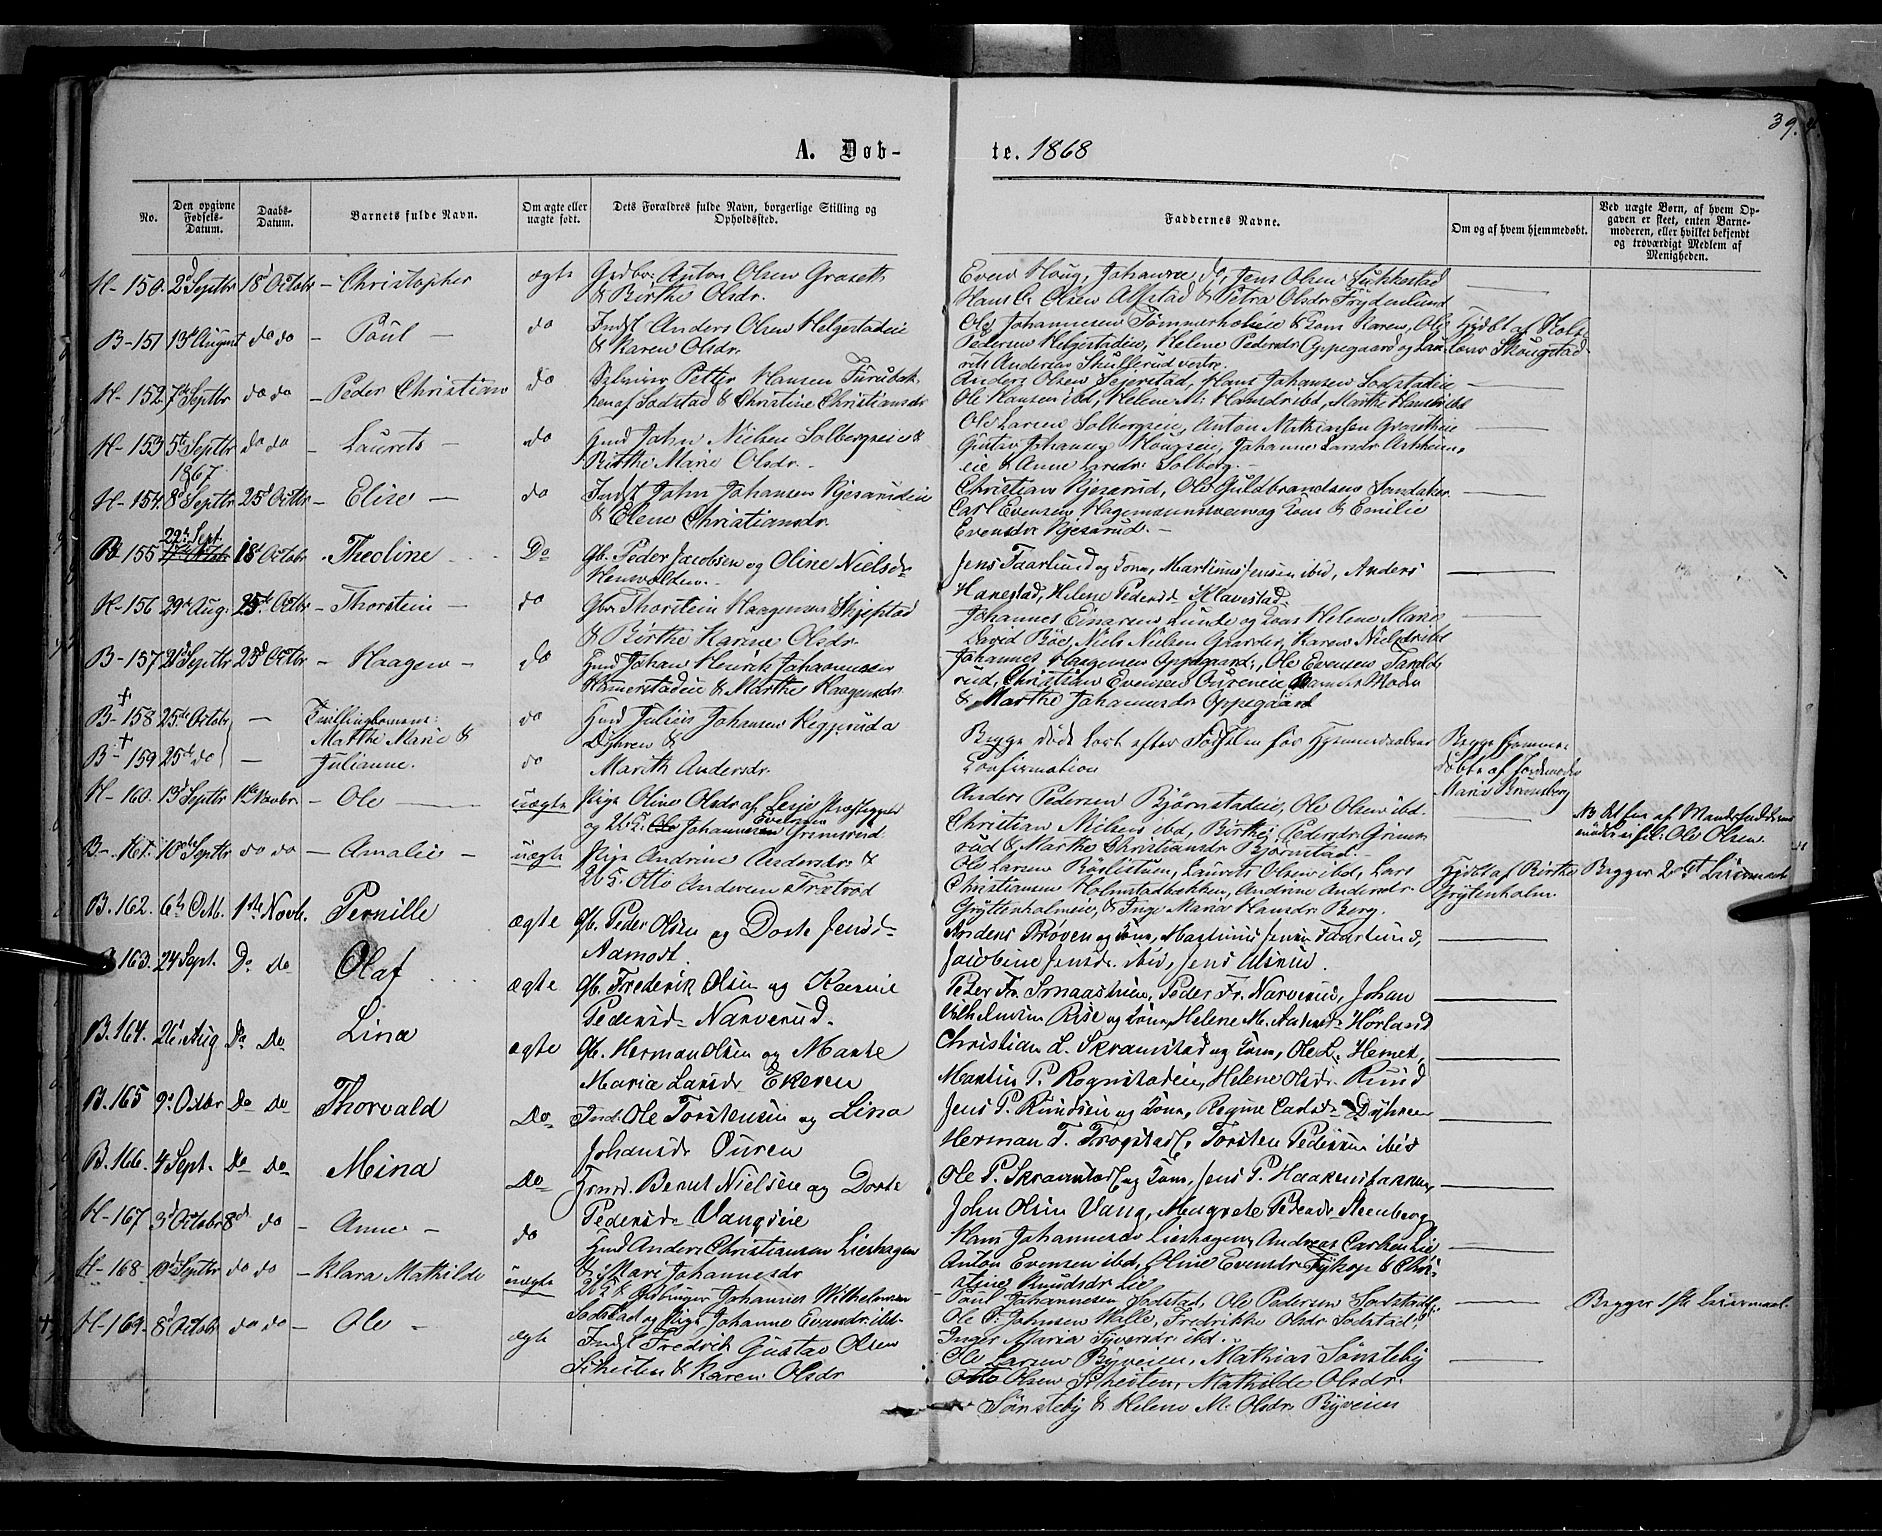 39.
A. Døb-
te. 1868
No.
Den opgivne Fødsels-Datum.
Daabs-Datum.
Barnets fulde Navn.
Om ægte eller uægte født.
Dets Forældres fulde Navn, borgerlige Stilling og Opholdssted.
Faddernes Navne.
Om og af hvem hjemmedøbt.
Ved uægte Børn, af hvem Opgaven er skeet, enten Barnemoderen, eller hvilket bekjendt og troværdigt Medlem af Menigheden.
H-150. 2d Septbr 18d Octobr - Christopher ægte Grdbr. Anton Olsen Graseth
& Birthe Olsdr.
Even Houg, Johanne do, Jens Olsen Lukkestad
Hans C. Olsen Alfstad & Petra Olsdr Frydenlund
B-151 13d August do do - Poul - do Indst Anders Olsen Helgestadeie
& Karen Olsdr.
Ole Johannesen Tømmerholeie & Kone Karen, Ole
Pedersen Helgestadeie, Helene Pedersdr Oppegaard og Lau-
rits Andersen Skullerud vestre.
Hjdbt af
Skougstad
H-152 7de Septbr do do - Peder Christian do Petter Hansen
af Sodstad & Christine Christiansdr
Anders Olsen Sejerstad, Hans Johansen Sodstadeie
Ole Hansen ibd, Helene M. Hansdr ibd, Marthe Hansdr ibd
H-153 5te Septbr do do - Laurets - do Hmd John Nielsen Solbergseie &
Birthe Marie Olsdr. -
Ole Larsen Solbergseie, Anton Mathiasen Grasetheie
Gustav Johansen Hougseie, Johanne Larsdr
eie & Anne Larsdr Solberg. -
1867
H-154. 8d Septbr 25d Octbr - Elise - do Indst John Johansen Kjeserudeie
& Elene Christiansdr.
Christian Kjeserud, Ole Guldbrandsen Sondaker
Carl Evensen og Kone & Emilie
Evensdr Kjeserud. -
22d Sept.
B-155 18d Octobr - Theoline Do Gb. Peder Jacobsen og Oline Nielsdr
Jens Faarlund og Kone, Martinus Jensen ibid, Anders
Hanestad, Helene Pedersd. Klavestad.
H-156 29d Aug. 25d Octbr - Thorstein - do Gbr Thorstein Haagensen Skjepstad
& Birthe Karine Olsdr.
Johannes Einarsen Lunde og Kone Helene Marie
David Böe, Niels Nielsen Gaarder, Karen Nielsdr ibd
B-157 21d Septbr 25d Octbr - Haagen - do Hmd Johan Henrik Johannesen
& Marthe Haagensdr
Johannes Haagensen Oppegaard, Ole Evensen
rud, Christian Evensen Oureneie
& Marthe Johannesdr Oppegaard
+
B-158 25de Octobr - Tvillingbornene:
Marthe Marie & do Hmd Julius Johansen
Dyhren &
+
B-159 25de do - Julianne. do Marith Andersdr.
Begge døde kort efter Fødselen før Hjemmedaabens
Confirmation
Begge hjemme-
døbte af Jordemoder
Marie
H-160. 13d Septbr 1ste Novbr - Ole - uægte Pige Oline Olsdr af Lesje Præstegjeld
og Johannes Evensen Grimsrud
Anders Pedersen Bjørnstadeie, Ole Olsen ibd.
Christian Nielsen ibd, Birthe Pedersdr Grims-
rud & Marthe Christiansdr Bjørnstad. -
NB Det
Ole Olsen.
B- 10de Septbr do do - Amalie - uægte Pige Andrine Andersdr &
Otto Andersen
Ole Larsen Laurets Olsen ibd, Lars
Christiansen Holmstadbakken, Andrine Andersdr
Gryttenholmeie, & Inge Maria Hansdr Berg.
Hjdbt af Birthe
Grytenholm
Begges 2det Leiermaal
B. 162. 6te Octb. 1ste Novb. Pernille ægte Gb. Peder Olsen og Dorte Jensd.
Aamodt.
Anders Prøven og Kone, Martinus Jensen Faarlund,
Jacobine Jensdr. ibid, Jens Ulsrud.
B. 163. 24 Sept. Do do Olaf ægte Gb. Frederik Olsen og Karine
Pedersd. Narverud.
Peter Fr. Peder Fr. Narverud, Johan
Vilhelmsen Rise og Kone, Helene M. Hørland
B. 164. 26 Aug Do Do Lina ægte Gb. Herman Olsen og Marte
Maria Larsdr Ekeren
Christian L. Skramstad og Kone, Ole L. Hemet,
Martin P. Rognstadeie, Helene Olsdr. Rund
B. 165 9d Octbr Do Do Thorvald Do Ind. Ole Torstensen og Lina
Johansd Ouren
Jens P. Rundseie og Kone, Regine Dyhren
Herman T. Frogstad, Torsten Pedersen ibid
B. 166. 4 Sept. Do do Meina Do Bernt Nielsen og Dorte
Pedersd. Vangseie
Ole P. Skramstad og Kone, Jens P.
John Olsen Vang, Margrete Pedersd. Steenberg
H-167 3d Octobr 8d do - Anne - do Hmd Anders Christiansen Lieshagen
& Mari Johannesdr
Hans Johannesen Lieshagen, Andreas Lie
Anton Evensen ibd, Oline Evensdr & Chri-
stine Knudsdr Lie
H-168 10de Septbr do do - Klara Mathilde uægte Johannes Wilhelmsen
Sodstad og Pige Johanne Evensdr ibd.
Poul Johannesen Sodstad, Ole Pedersen Sodstad,
Ole P. Johnsen Walle, Fredrikke Olsdr Sodstad,
Inger Maria Syversdr ibd.
Begges 1ste Leiermaal.
H-169- 8d Octobr do do - Ole - ægte Indst Fredrik Gustav Olsen
& Karen Olsdr
Ole Larsen Byveien, Mathias Sønsteby
Otto Olsen Mathilde Olsdr.
Sønsteby & Helene M. Olsdr. Byveien